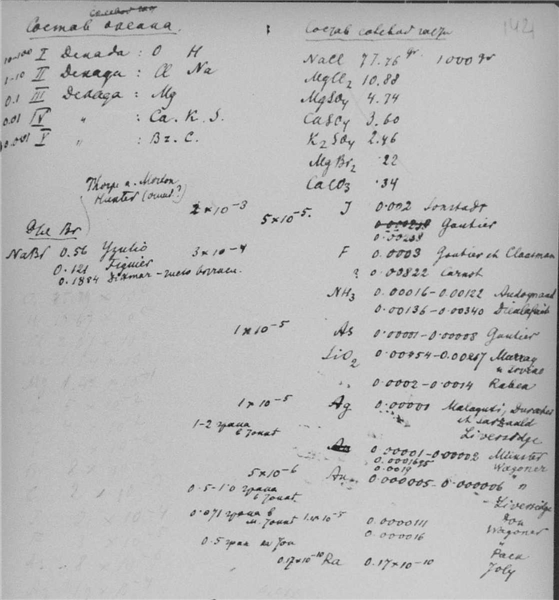 Состав океана
10-100 I Декада: O H
1-10 II Декада: Cl Na
0.1 III Декада: Mg
0.01 IV " : Ca. K. S.
0.001 V " : Br. C.
Thorp a. Morton
Hunter
Для Br
NaBr 0.56
0.121 Figuier
0.1884 Dittmar
2×10-3
5×10-5.
3×10-4
1×10-5
1×10-5
1-2 грана
в тонне
5×10-6
0.5-1.0 грана
в тонне
0.071 грана в
м. тонне
0.5 гран на тон
0.17×10-10
Состав солевой части 142
NaCl 77.76 gr 1000 gr
MgCl2 10.88
MgSO4 4.74
CaSO4 3.60
K2SO4 2.46
MgBr2 .22
CaCO3 .34
J 0.002 Sonstadt
Gautier
0.00238
F 0.0003 Gautier et Claasman
0.00822 Carnot
NH3 0.00016-0.00122 Audoynaud
0.00136-0.00340 Dieulafait
As 0.00001-0.00008 Gautier
SiO2 Murray
0.0002-0.0014 Raben
Ag 0.00001 Malaguti, Durocher
et Sarzeaud
Liversidge
0.00001-0.00002 Münster
0.0019 Wagoner
Au 0.000005-0.000006 "
Liversidge
0.0000111 Don
0.000016 Wagoner
" Pack
Ra 0.17×10-10 Joly